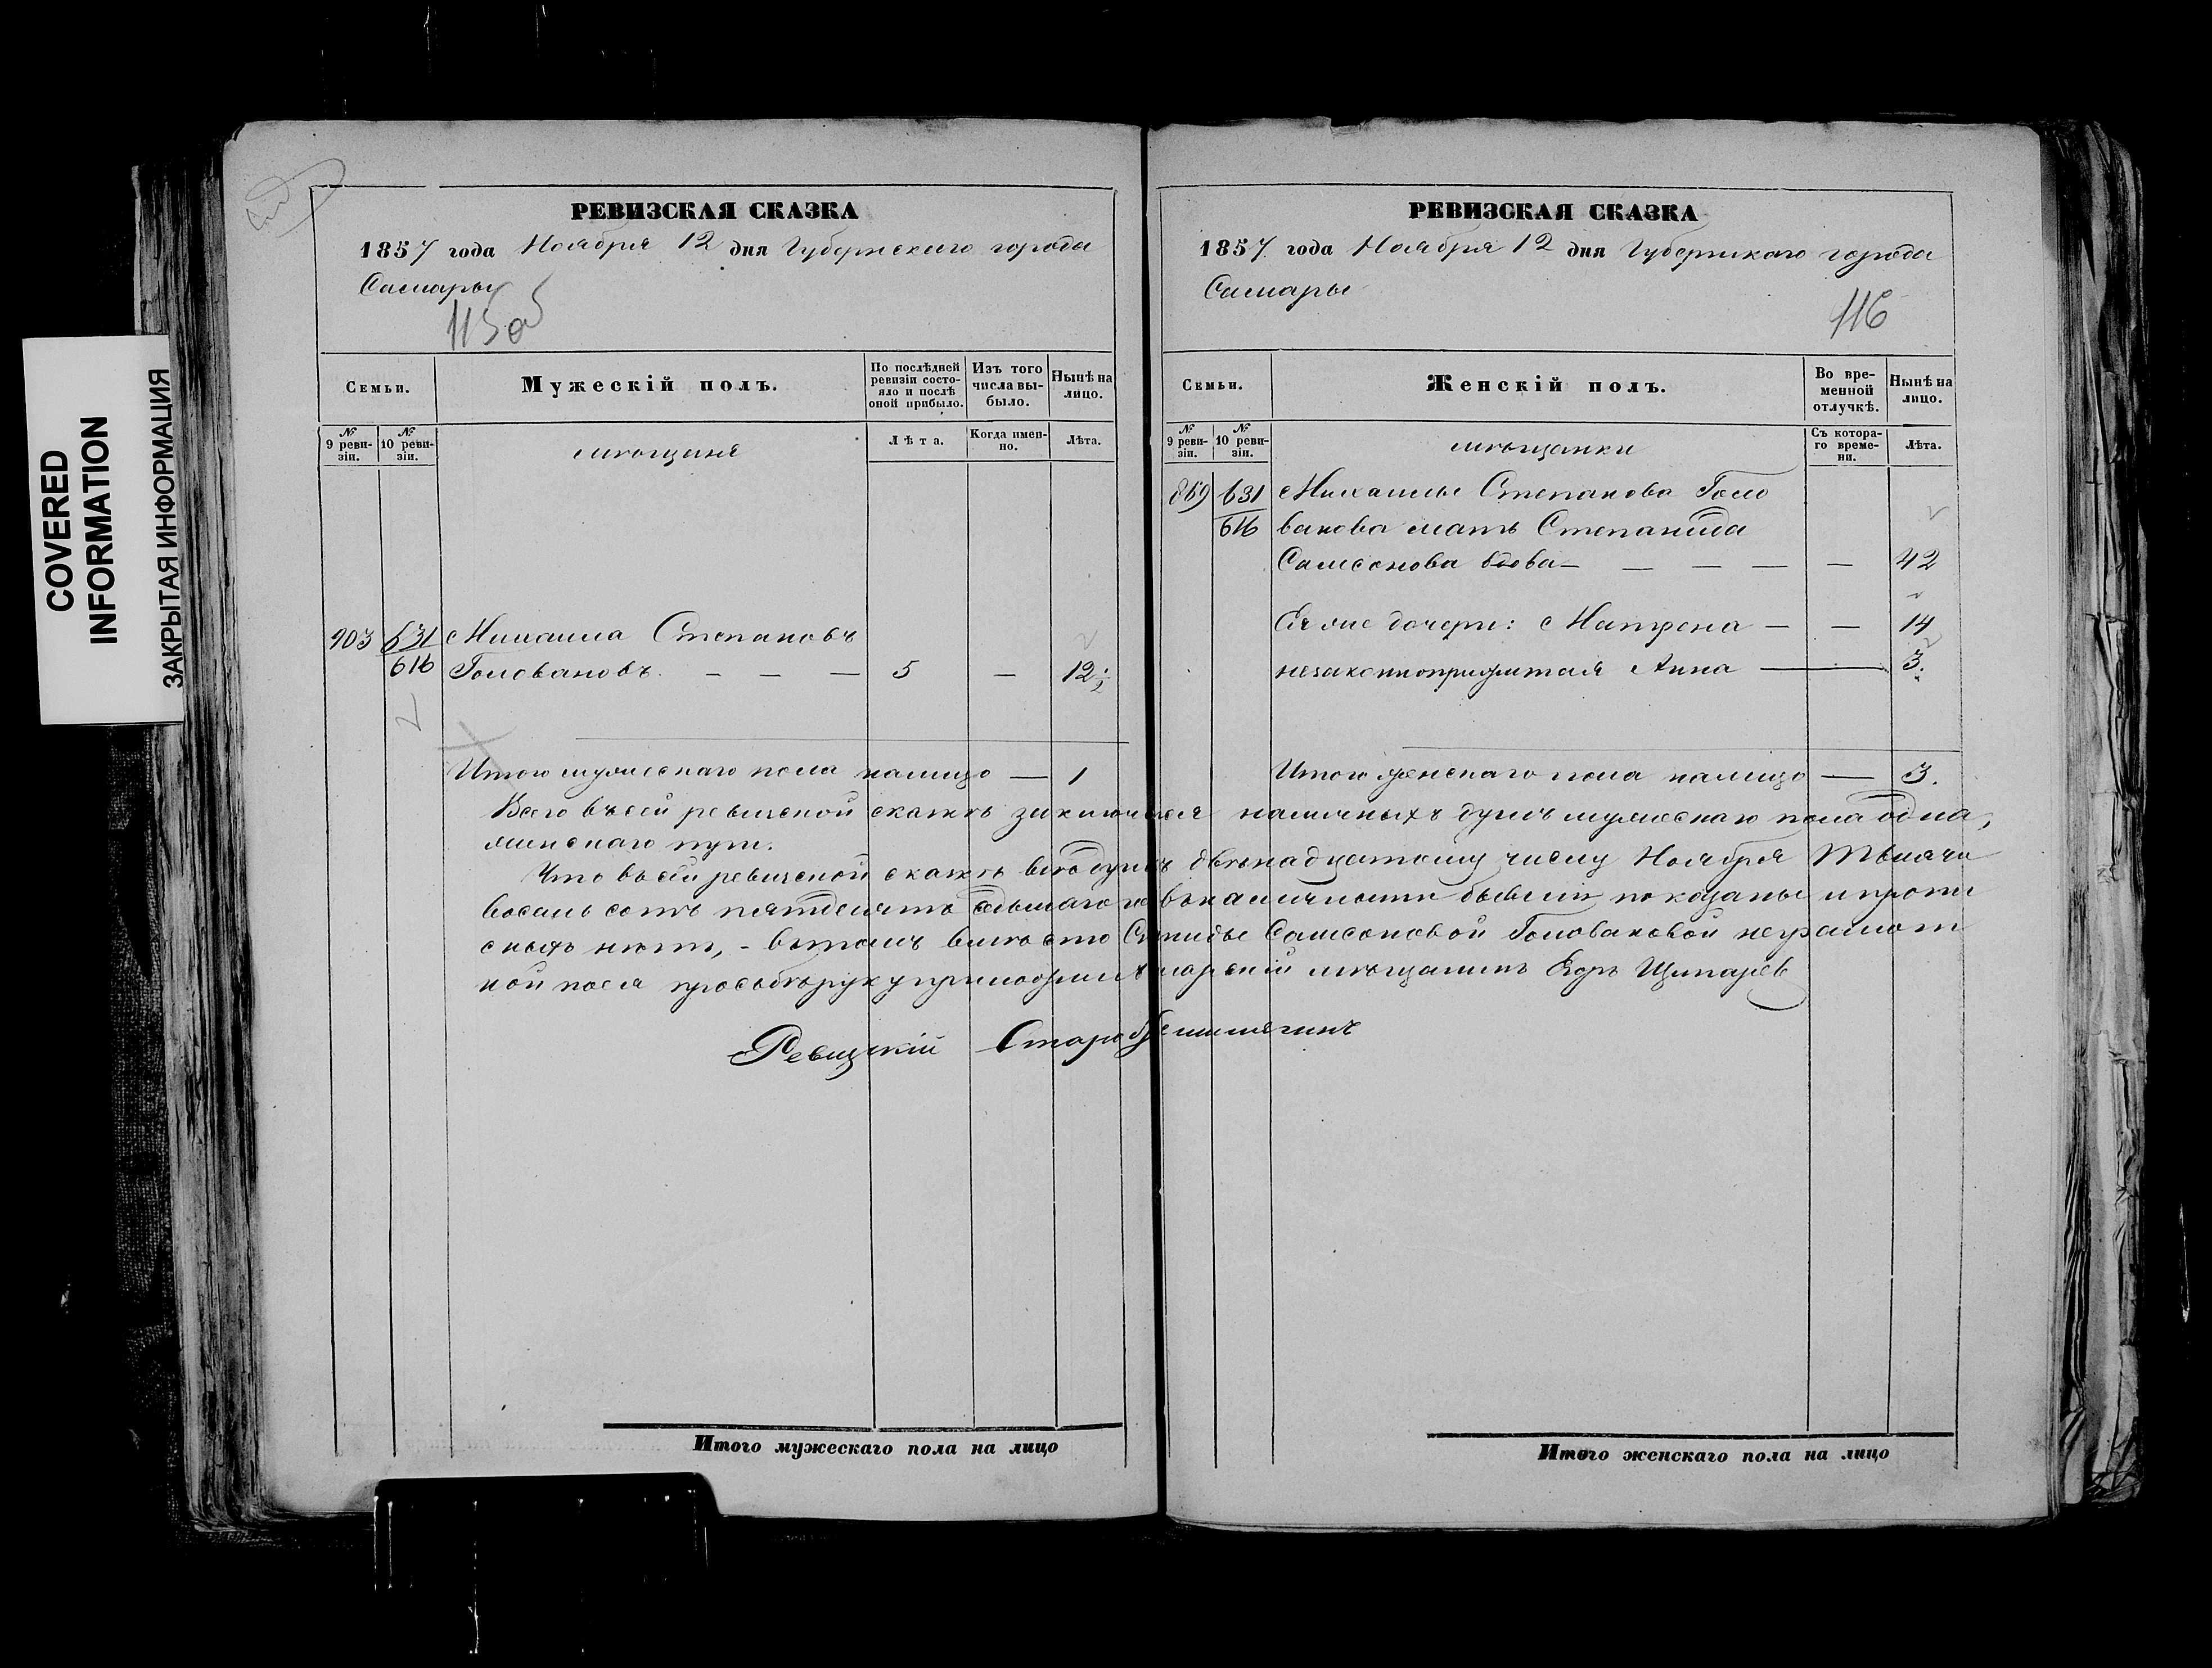 COVERED
INFORMATION
ЗАКРЫТАЯ ИНФОРМАЦИЯ
РЕВИЗСКАЯ СКАЗКА
1857 года Ноября 12 дня Губернскаго города
Самары
115 об
Семьи.
Мужескій полъ.
По послѣдней ревизіи состояло и послѣ оной прибыло.
Изъ того числа выбыло.
Нынѣ на лицо.
№ 9 ревизіи.
№ 10 ревизіи.
мѣщаня
Лѣта.
Когда именно.
Лѣта.
903 631 Михаила Степановъ
616 Головановъ. — — — 5 — 12
Итого мужескаго пола налицо — 1
РЕВИЗСКАЯ СКАЗКА
1857 года Ноября 12 дня Губернскаго города
Самары
116
Семьи.
Женскій полъ.
Во временной отлучкѣ.
Нынѣ на лицо.
№ 9 ревизіи.
№ 10 ревизіи.
мѣщанки
Съ котораго времени.
Лѣта.
869 631 Михаилы Степанова Голо
616 ванова мать Степанида
Самсонова вдова — — — — — 42
Ея же дочери: Матрена — — 14
незаконноприжитая Анна — 3.
Итого женскаго пола налицо — 3.
Всего въсей ревизской сказкѣ заключается наличныхъ душъ мужескаго пола одна,
женскаго три.
Что въсей ревизской сказкѣ всѣ душъ двѣнадцатому числу Ноября Тысяча
восемь сотъ пятдесятъ седьмаго вналичности бывшія показаны и пропи
сныхъ нѣтъ, - вътомъ вмѣсто Самсоновой Головановой неграмот
ной поея прозьбѣ руку приложилъ мѣщанинъ Егоръ
Ревизскій Староста
Итого мужескаго пола на лицо
Итого женскаго пола на лицо